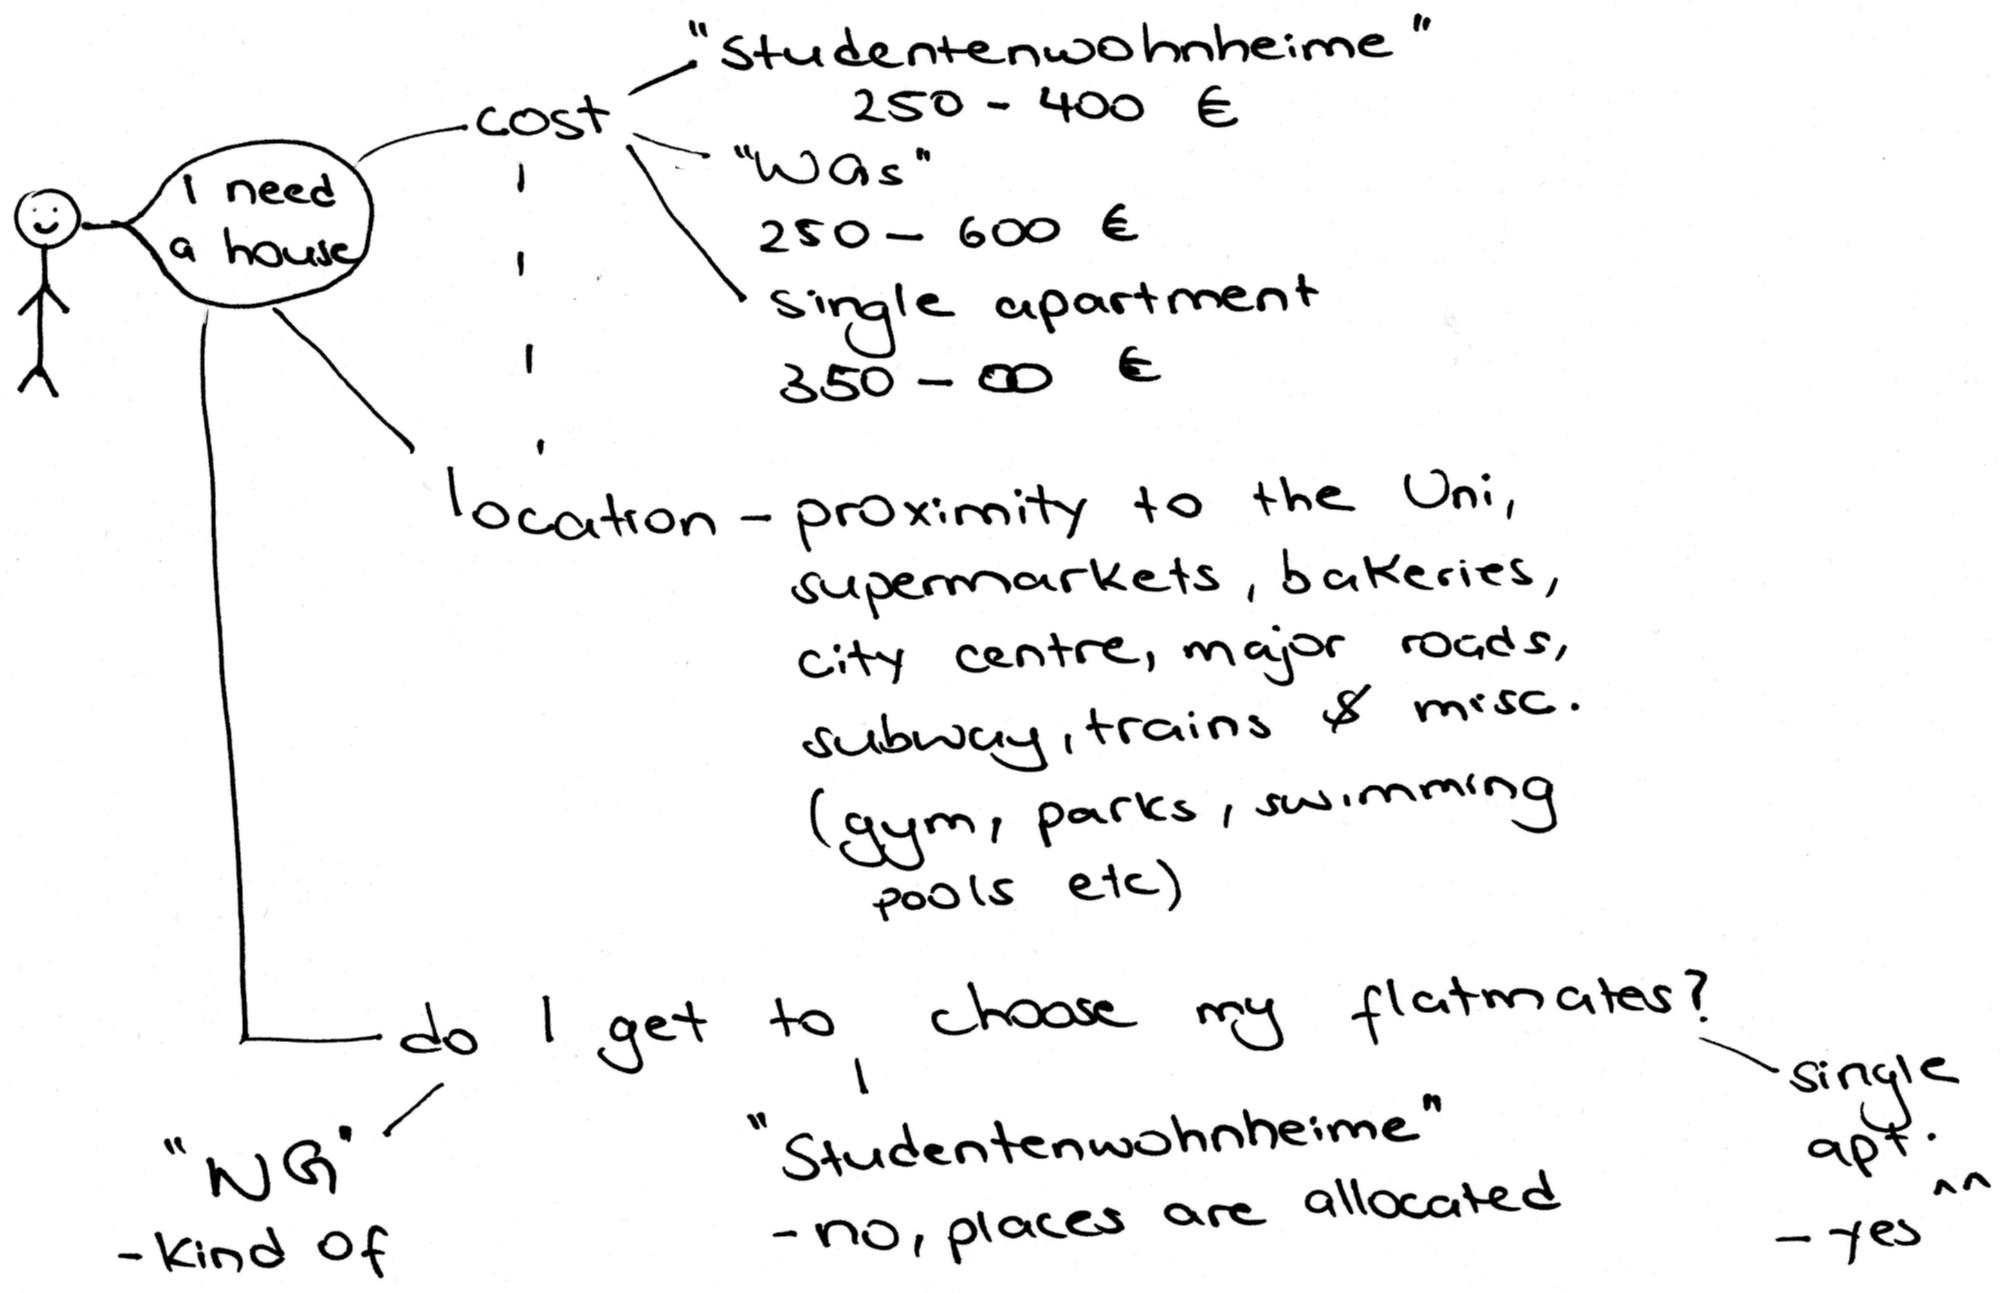 I need
a house
cost
"Studentenwohnheime"
250 - 400 €
"WGs"
250 - 600 €
single apartment
350 - ∞ €
location - proximity to the Uni,
supermarkets, bakeries,
city centre, major roads,
subway, trains & misc.
(gym, parks, swimming
pools etc)
do I get to choose my flatmates?
"WG"
- kind of
"Studentenwohnheime"
- no, places are allocated
single
apt.
- yes ^^